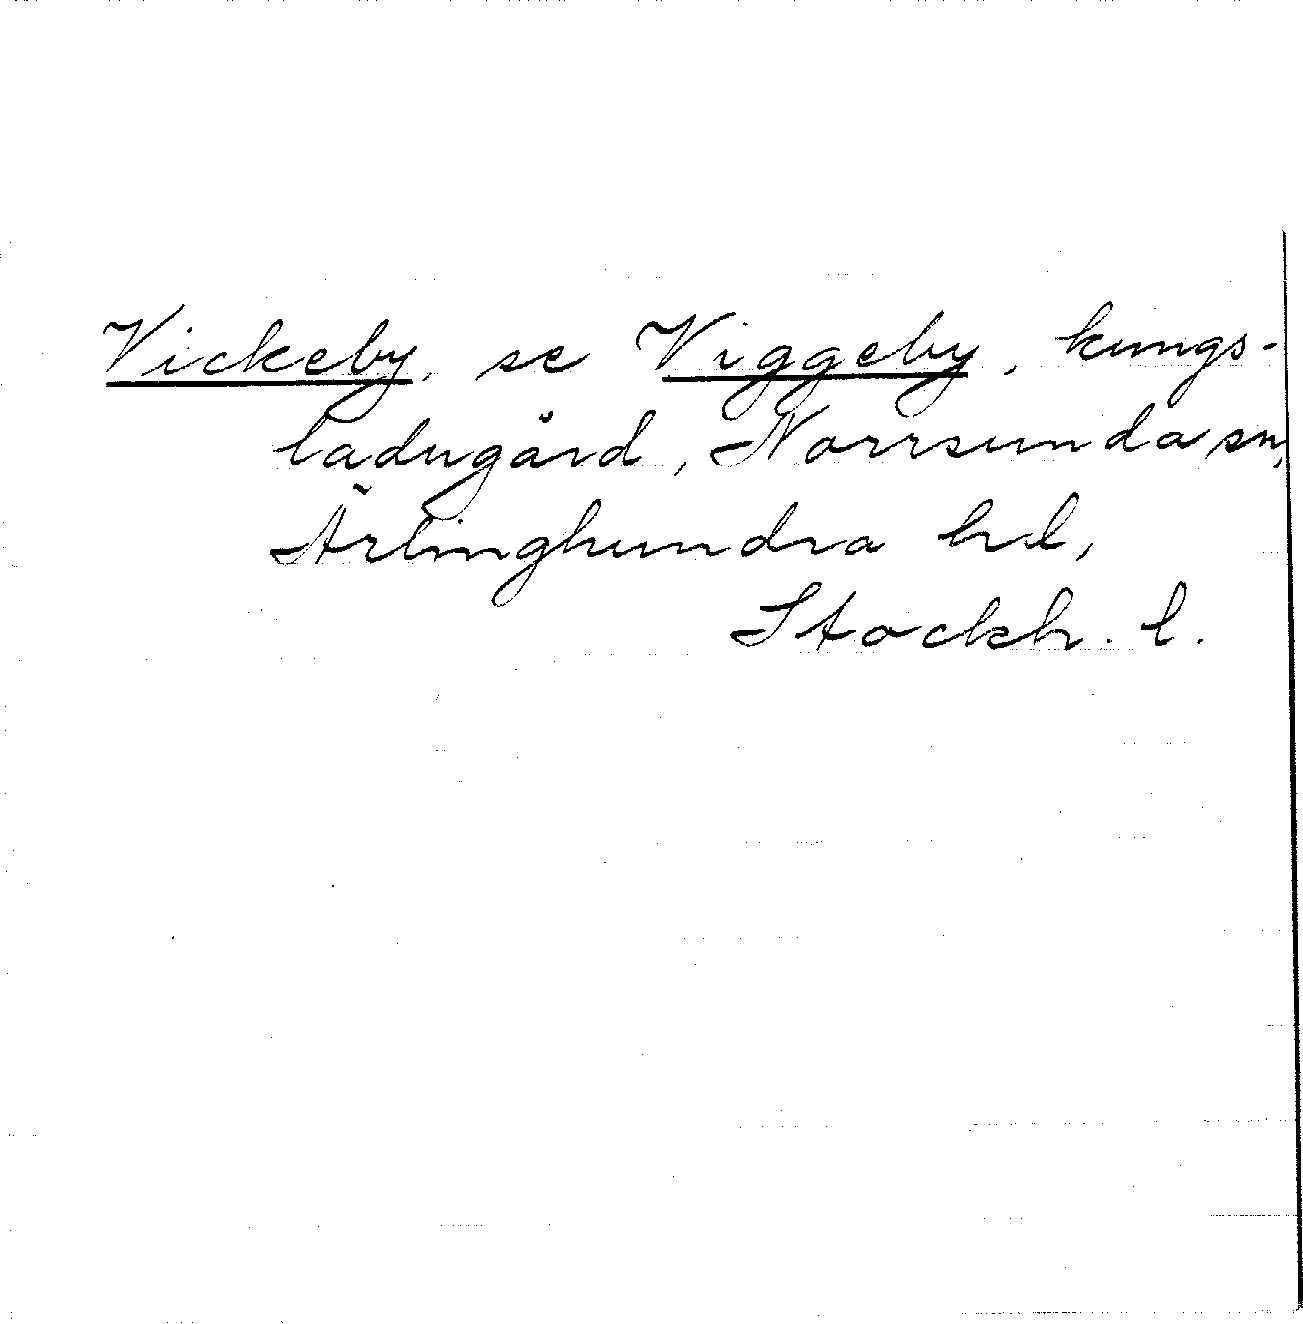 Vickeby, se Viggeby, kungs-
ladugård, Norrsunda sn,
Ärlinghundra hd,
Stockh. l.